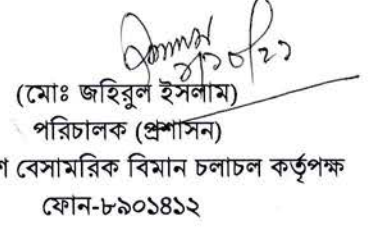 (মোঃ জহিরুল ইসলাম)
পরিচালক (প্রশাসন)
বেসামরিক বিমান চলাচল কর্তৃপক্ষ
ফোন-৮৯০১৪১২